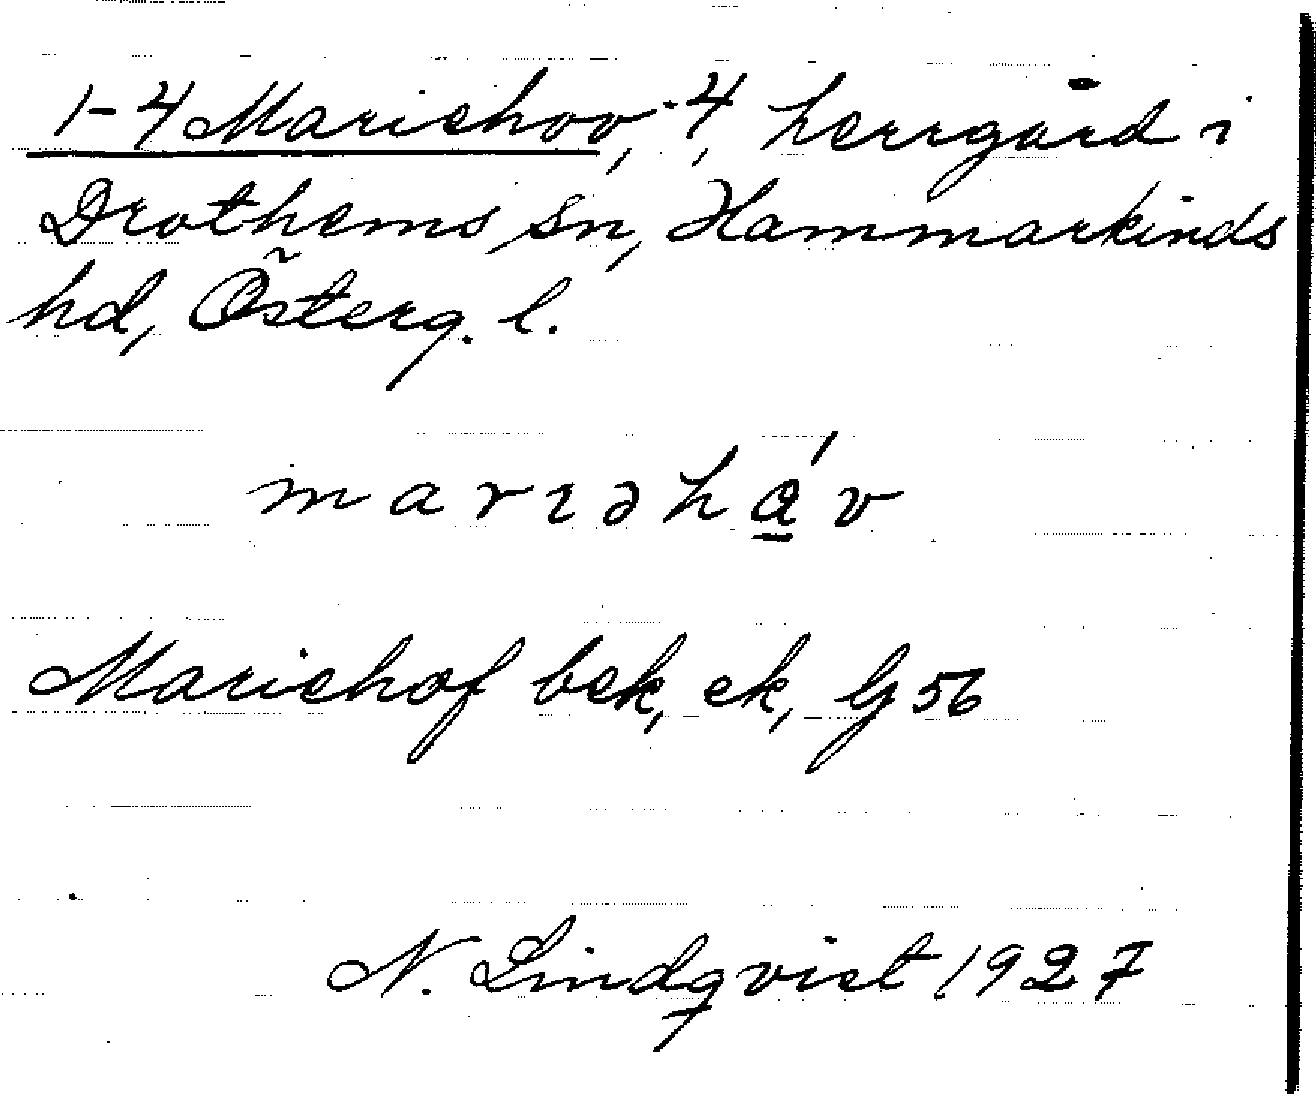 1-4 Mariehov, 4, herrgård i
Drothems sn, Hammarkinds
hd, Österg. l.
marıəhá̱v
Mariehof bek, ek, G 56
N. Lindqvist 1927